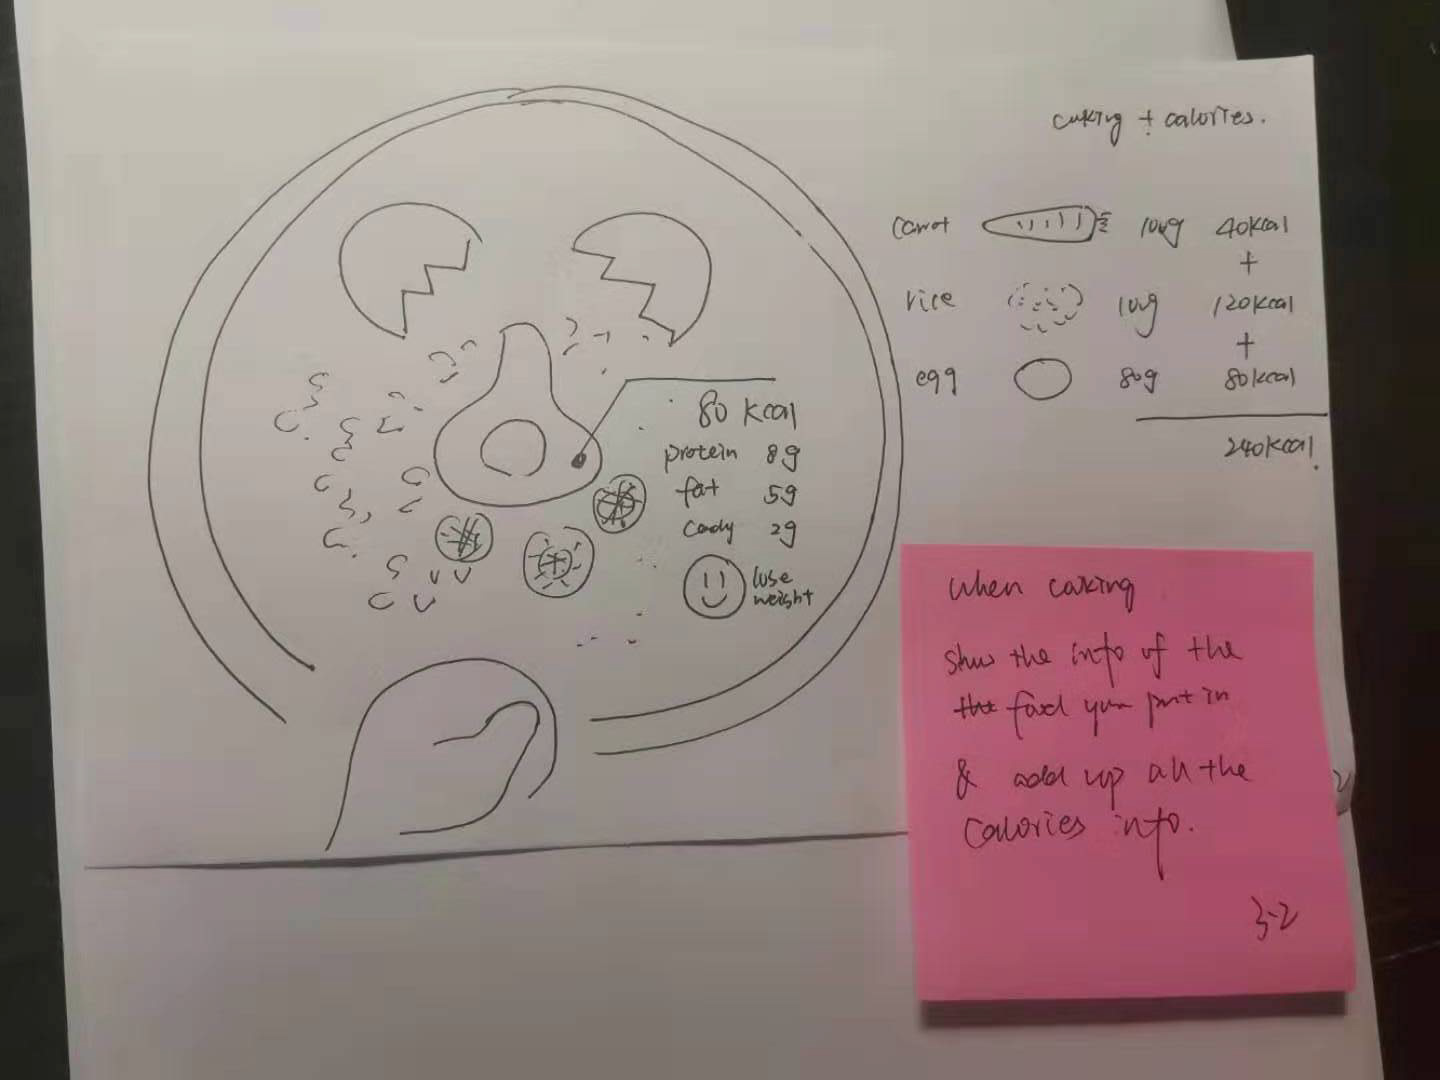 cuking + calories.
carrot 100g 40kcal
+
rice 100g 120kcal
+
egg 80g 80kcal
240kcal.
80 kcal
protein 8g
fat 5g
cady 2g
lose
weight
when coking
show the info of the
the food you put in
& add up all the
calories info.
3-2